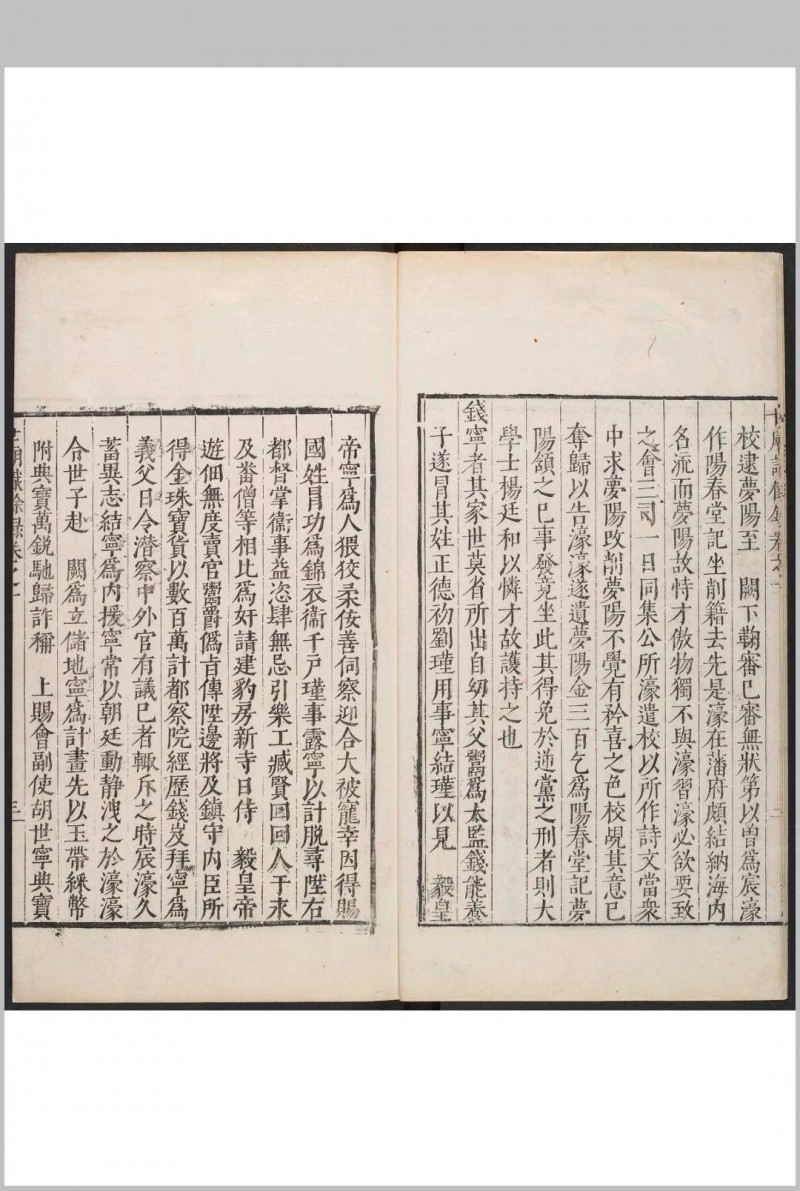 校逮夢陽至　闕下鞫審已審無狀第以曾爲宸濠
作陽春堂記坐削籍去先是濠在藩府頗結納海内
名流而夢陽故恃才傲物獨不與濠習濠必欲要致
之會三司一日同集公所濠遣校以所作詩文當衆
中求夢陽攺削夢陽不覺有矜喜之色校覘其意已
奪歸以告濠濠遂遺夢陽金三百乞爲陽春堂記夢
陽頷之已事發竟坐此其得免於逆黨之刑者則大
學士楊廷和以憐才故護持之也
錢寧者其家世莫省所出自幼其父鬻爲太監錢能養
子遂冐其姓正德初劉瑾用事寧結瑾以見　毅皇
帝寧爲人猥狡柔佞善伺察迎合大被寵幸因得賜
國姓冐功爲錦衣衞千戸瑾事露寧以計脱尋陞右
都督掌衞事益恣肆無忌引樂工臧賢回回人于永
及畨僧等相比爲奸請建豹房新寺日侍　毅皇帝
遊佃無度賣官鬻爵僞㫖傳陞邊將及鎮守内臣所
得金珠寶貨以數百萬計都察院經歷錢岌拜寧爲
義父日令潜察中外官有議已者輙斥之時宸濠久
蓄異志結寧爲内援寧常以朝廷動静洩之於濠濠
令世子赴　闕爲立儲地寧爲計畫先以玉帶綵幣
附典寶萬銳馳歸詐稱　上賜會副使胡世寧典寶
三